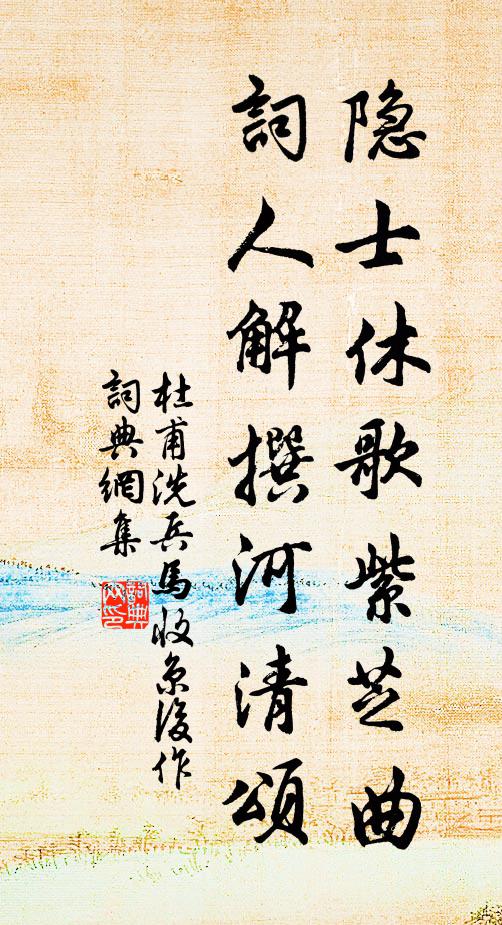 隐士休歌紫芝曲
詞人解撰河清頌
杜甫洗兵馬收京後作
詞典網集